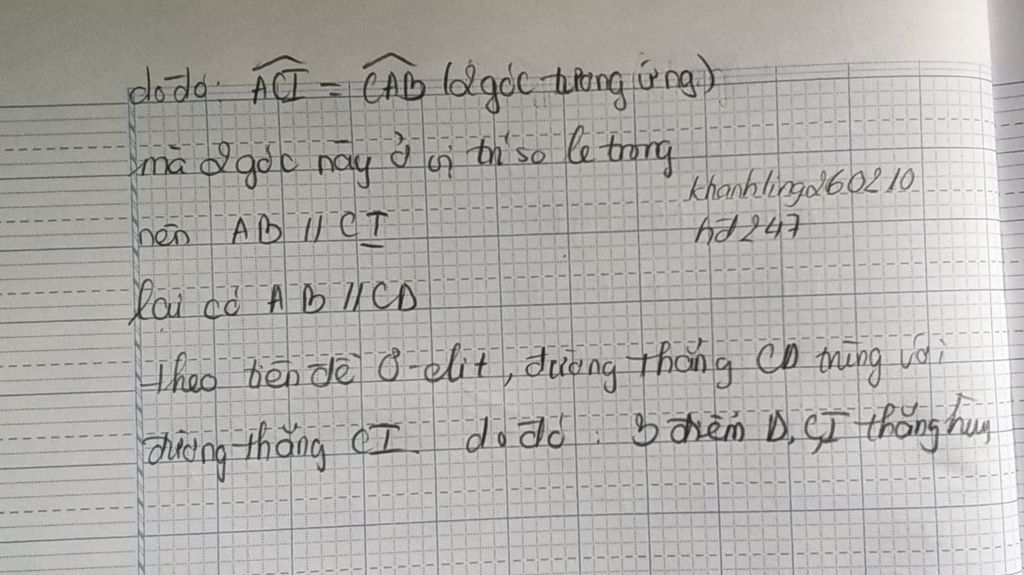 do đó: ACI = CAB (2 góc tương ứng)
mà 2 góc này ở vị trí so le trong
khanhling260210
nên AB // CI
hđ247
lại có AB // CD
Theo tiên đề Ơ-clit, đường thẳng CD trùng với
đường thẳng CI. do đó: 3 điểm D, C, I thẳng hàng